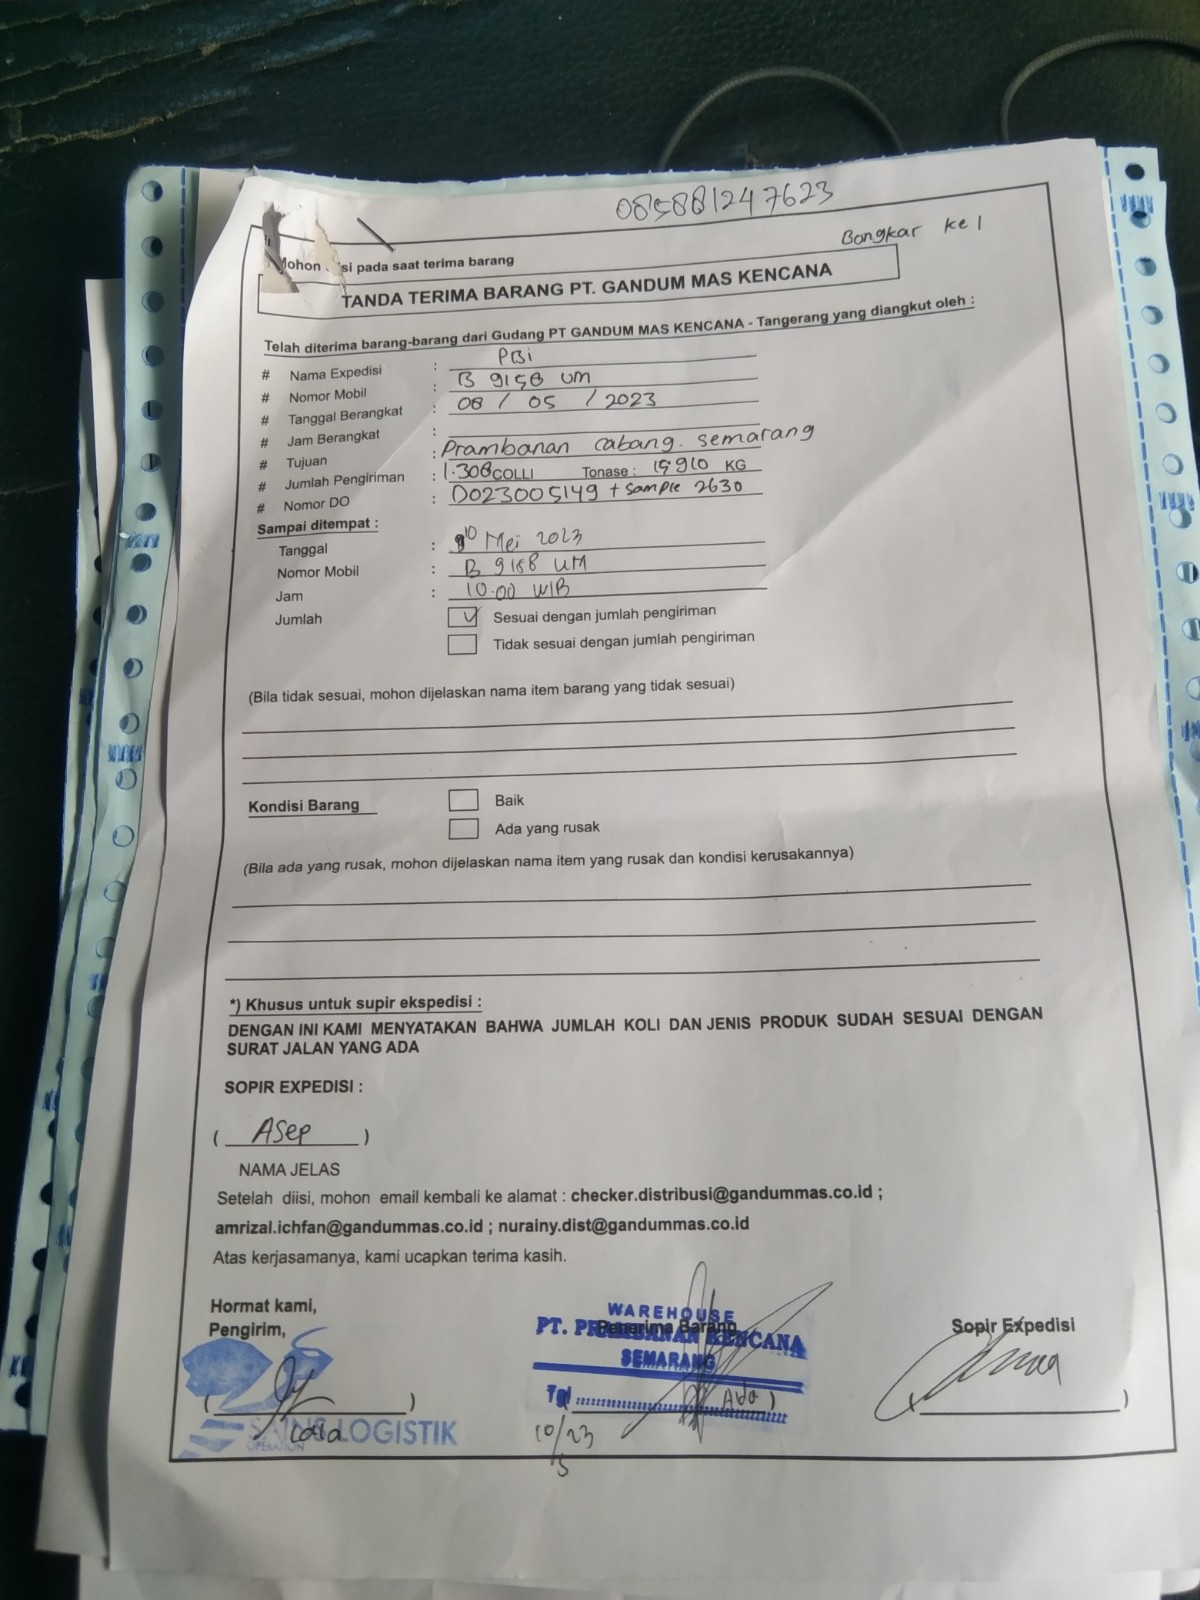 085881247623
Bongkar ke 1
Mohon si pada saat terima barang
TANDA TERIMA BARANG PT. GANDUM MAS KENCANA
Telah diterima barang-barang dari Gudang PT GANDUM MAS KENCANA - Tangerang yang diangkut oleh :
# Nama Expedisi : PBi
# Nomor Mobil : B 9158 UM
# Tanggal Berangkat : 08 / 05 / 2023
# Jam Berangkat :
# Tujuan : Prambanan cabang. semarang
# Jumlah Pengiriman : 1.308 COLLI Tonase : 15910 KG
# Nomor DO : DO23005149 + sample 2630
Sampai ditempat :
Tanggal : 10 Mei 2023
Nomor Mobil : B 9158 UM
Jam : 10.00 WIB
Jumlah Sesuai dengan jumlah pengiriman
Tidak sesuai dengan jumlah pengiriman
(Bila tidak sesuai, mohon dijelaskan nama item barang yang tidak sesuai)
Kondisi Barang Baik
Ada yang rusak
(Bila ada yang rusak, mohon dijelaskan nama item yang rusak dan kondisi kerusakannya)
*) Khusus untuk supir ekspedisi :
DENGAN INI KAMI MENYATAKAN BAHWA JUMLAH KOLI DAN JENIS PRODUK SUDAH SESUAI DENGAN
SURAT JALAN YANG ADA
SOPIR EXPEDISI :
( Asep )
NAMA JELAS
Setelah diisi, mohon email kembali ke alamat : checker.distribusi@gandummas.co.id ;
amrizal.ichfan@gandummas.co.id ; nurainy.dist@gandummas.co.id
Atas kerjasamanya, kami ucapkan terima kasih.
Hormat kami,
Pengirim,
LOGISTIK
OPERATION
WAREHOUSE
Penerima Barang
PT. PRAMBANAN KENCANA
SEMARANG
Tgl
10/23
5
Sopir Expedisi